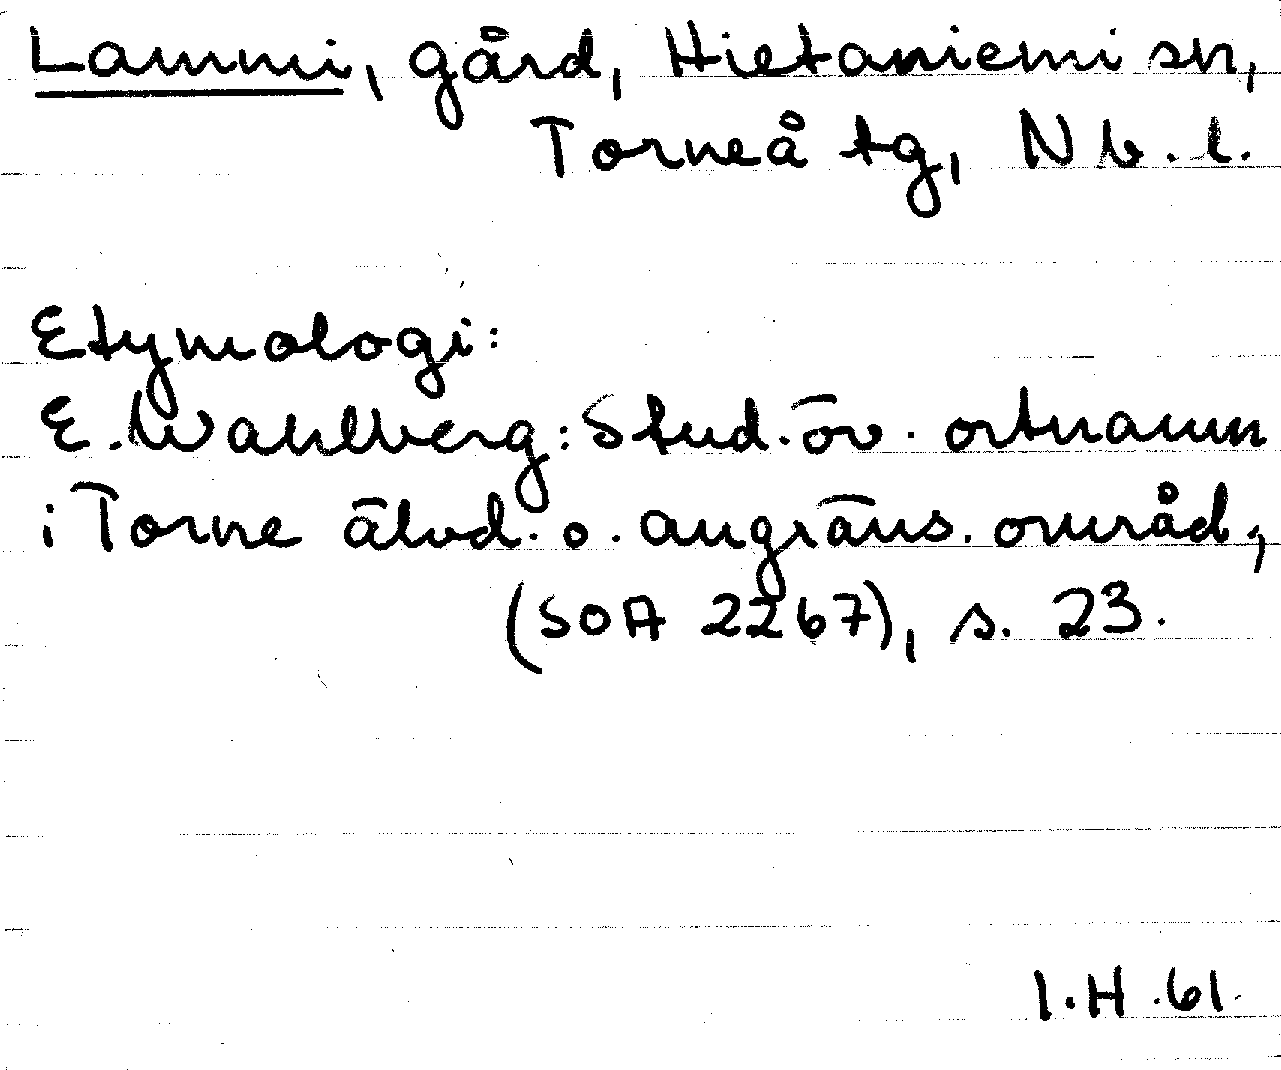 Lammi, gård, Hietaniemi sn,
Torneå tg, Nb.l.
Etymologi:
E. Wahlberg: Stud. öv. ortnamn
i Torne älvd. o. angräns. områd,
(SOA 2267), s. 23.
I.H.61.